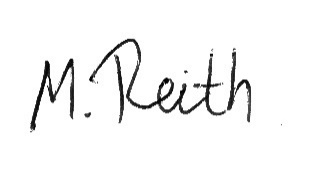 M. Reith